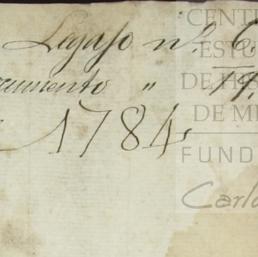 Legajo nº. 6
cumento " 19
1784
CENT
ESTU
DE H
DE M
FUND
Carl